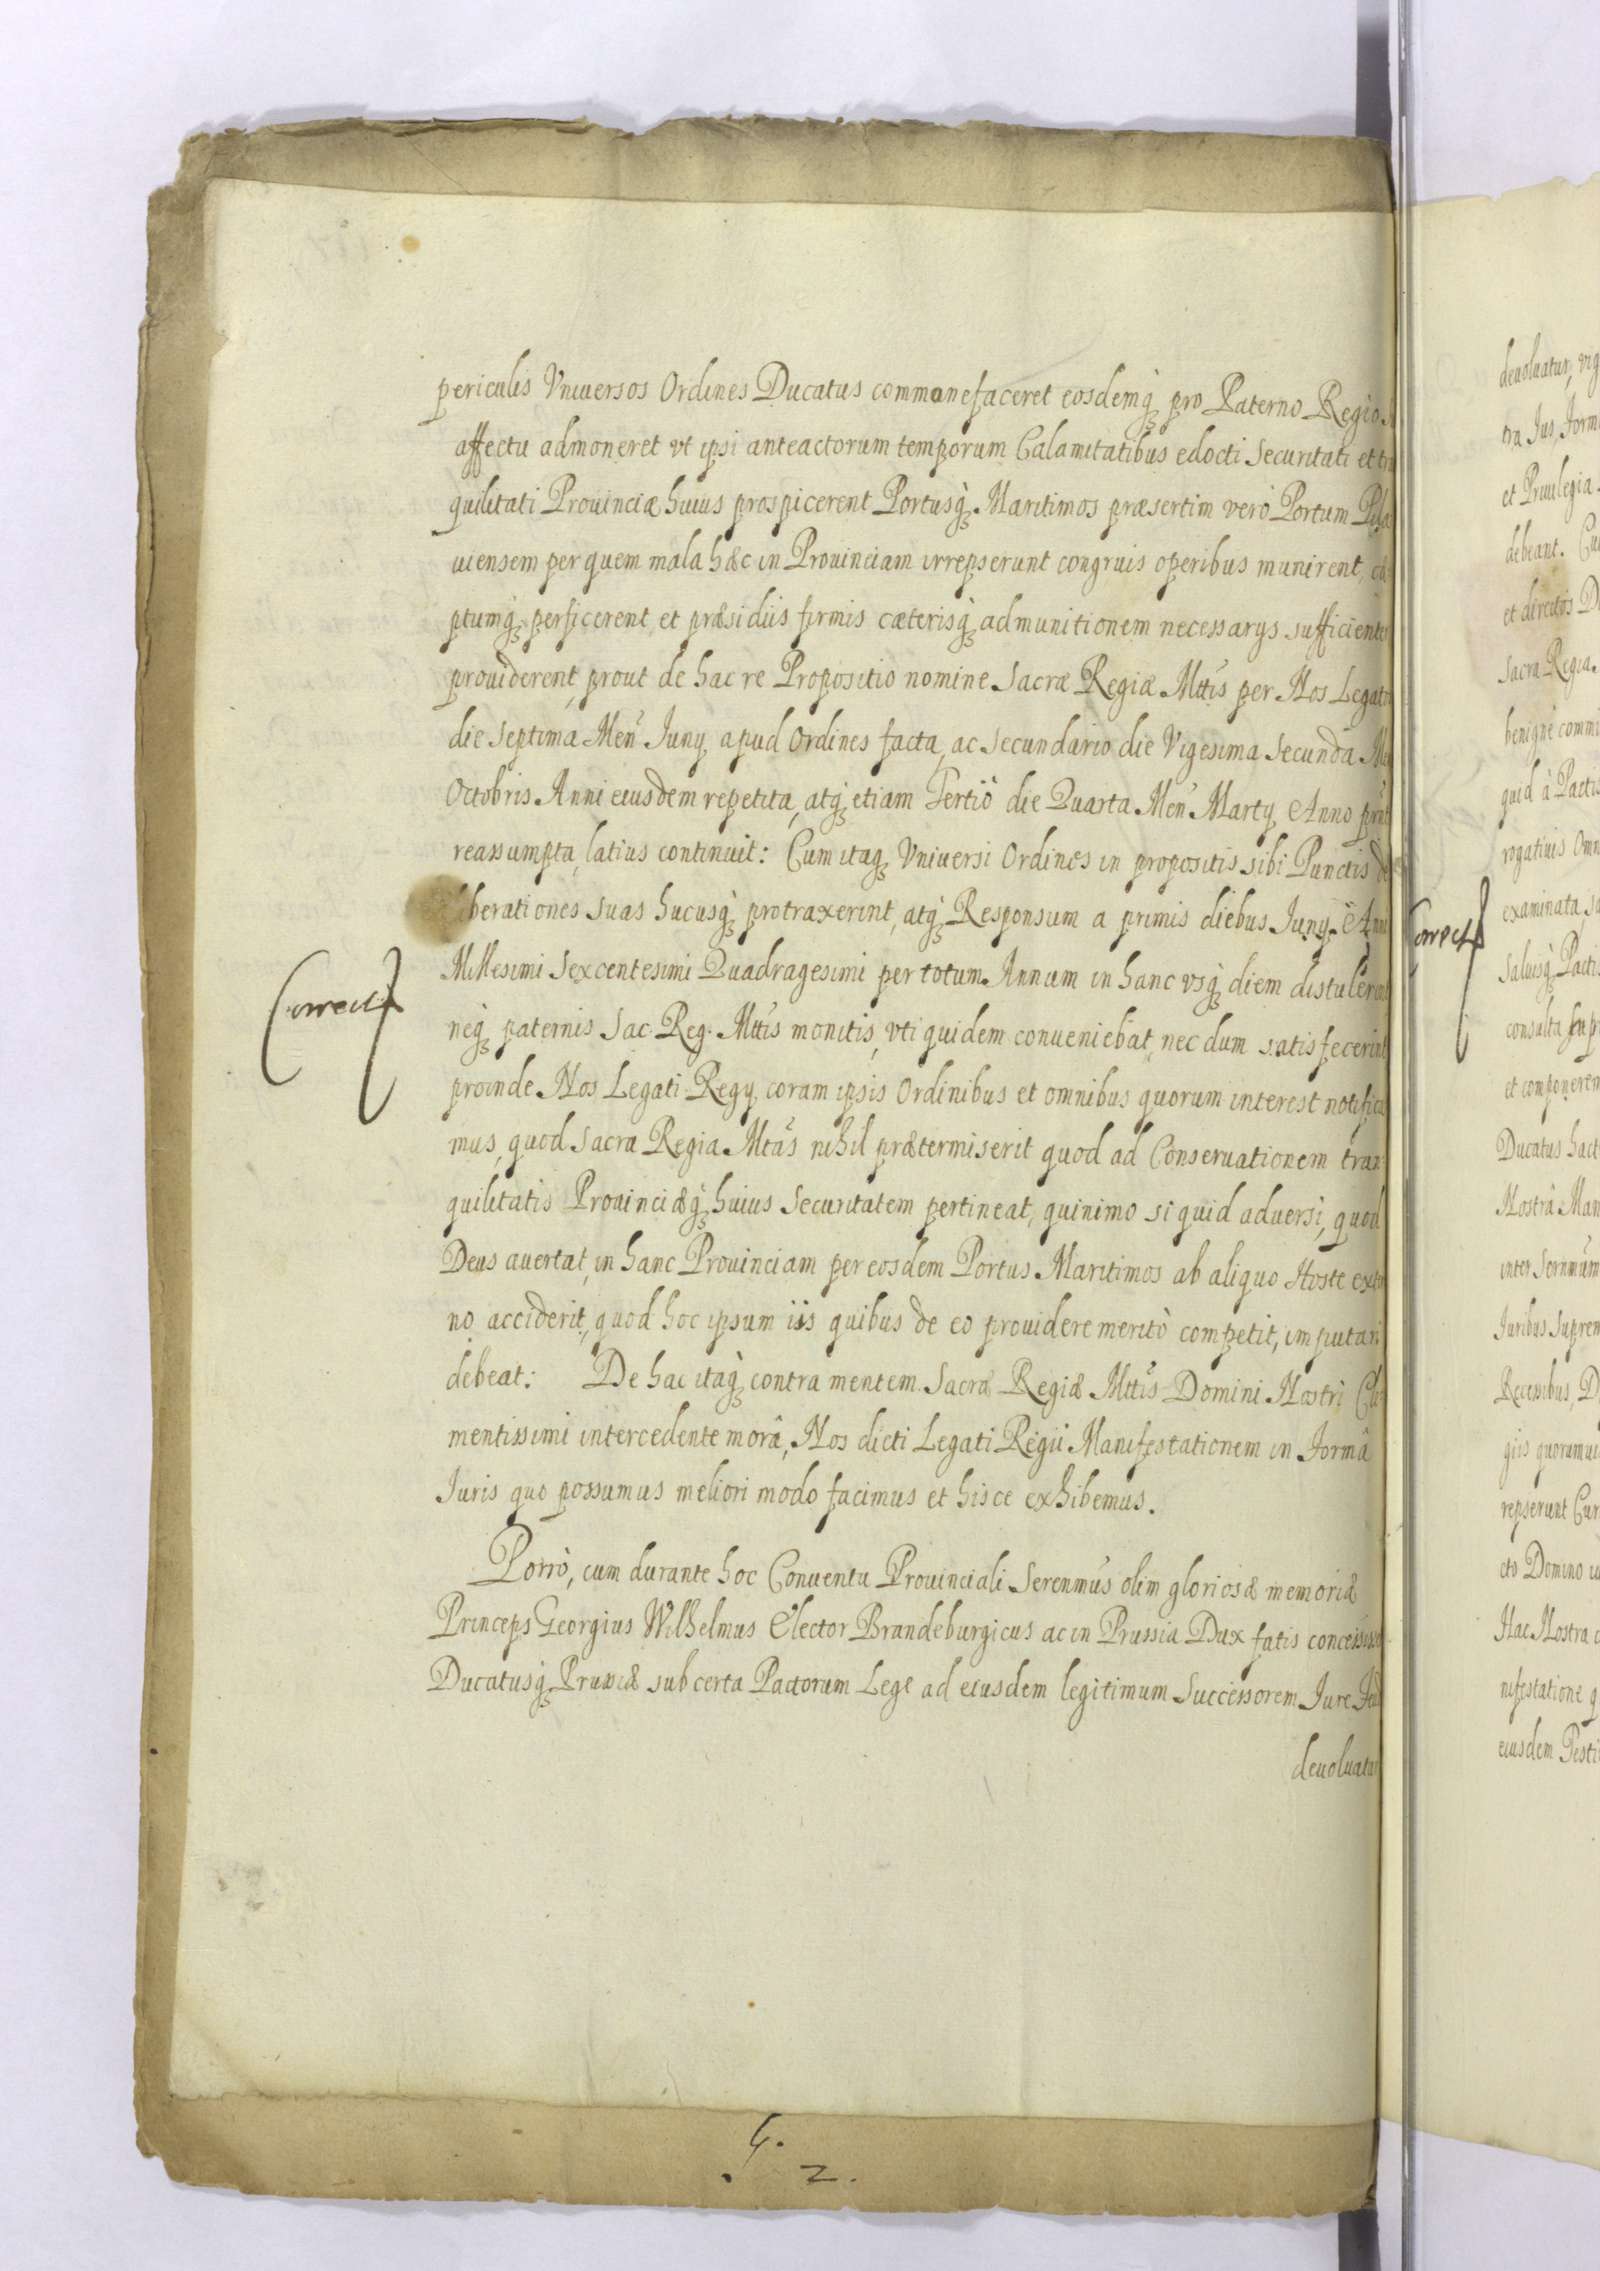 periculis Vniuersos Ordines Ducatus commonefaceret eosdemq́ pro Paterno Regio
affectu admoneret vt ipsi anteactorum temporum Calamitatibus edocti Securitati et
quilitati Prouinciæ huius prospicerent Portusq́ Maritimos præsertim verò Portum
uiensem per quem mala hæc in Prouinciam irrepserunt congruis operibus munirent,
ptumq́ perficerent, et præsidiis firmis cæterisq́ ad munitionem necessarys sufficienter
prouiderent, prout de hac re Propositio nomine Sacræ Regiæ Mttis per Nos Legatos
die Septima Men̄ Iuny apud Ordines facta, ac Secundario die Vigesima Secunda
Octobris Anni eiusdem repetita, atq́ etiam Tertiò die Quarta Men̄ Marty Anno
reassumpta, latius continuit: Cum itaq́ Vniuersi Ordines in propositis sibi Punctis
berationes suas hucusq́ protraxerint, atq́ Responsum a primis diebus Iuny Anni
Millesimi Sexcentesimi Quadragesimi per totum Annum in hanc vsq́ diem distulerint
neq́ paternis Sac. Reg. Mttis monitis, vti quidem conueniebat, nec dum satisfecerint
proinde Nos Legati Regy coram ipsis Ordinibus et omnibus quorum interest
mus, quod Sacra Regia Mtás nihil prætermiserit quod ad Conseruationem tran
quilitatis Prouinciæq́ huius Securitatem pertineat, quinimo si quid aduersi, quod
Deus auertat, in hanc Prouinciam per eosdem Portus Maritimos ab aliquo Hoste
no acciderit, quod hoc ipsum iis quibus de eo prouidere meritò competit, imputari
debeat: De hac itaq́ contra mentem Sacræ Regiæ Mttis Domini Nostri
mentissimi intercedente morâ, Nos dicti Legati Regii Manifestationem in Formâ
Iuris quo possumus meliori modo facimus et hisce exhibemus.
Porrò, cum durante hoc Conuentu Prouinciali Serenmus olim gloriosæ memoriæ
Princeps Georgius Wilhelmus Elector Brandeburgicus ac in Prussia Dux fatis
Ducatusq́ Prussiæ sub certa Pactorum Lege ad eiusdem legitimum Successorem Iure
deuoluatur
4.
2.
deuoluatur,
tra Ius
et Priuilegia
debeant.
et directos
Sacra Regia
benigné
quid à Pactis
rogatiuis
examinata,
saluisq́ Pactis
consulta
et componerem
Ducatus
Nostrâ
inter Sernmum
Iuribus
Recessibus,
giis quorumuis
repserunt
cto Domino
Hac Nostra
nifestatione
eiusdem